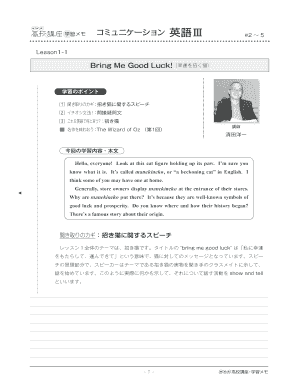 高校講座・学習メモ コミュニケーション 英語Ⅲ #2～5
Lesson1-1
Bring Me Good Luck! (幸運を招く猫)
学習のポイント
(1) 聞き取りのカギ：招き猫に関するスピーチ
(2) イチオシ文法：間接疑問文
(3) 招き猫
The Wizard of Oz (第1回)
講師
今回の学習内容・本文
Hello, everyone! Look at this cat figure holding up its paw. I'm sure you
know what it is. It's called manekineko, or "a beckoning cat" in English. I
think some of you may have one at home.
Generally, store owners display manekineko at the entrance of their stores.
Why are manekineko put there? It's because they are well-known symbols of
good luck and prosperity. Do you know where and how their history began?
There's a famous story about their origin.
聞き取りのカギ：招き猫に関するスピーチ
レッスン1全体のテーマは、招き猫です。タイトルの "bring me good luck" は「私に幸運
をもたらして、運んできて」という意味で、猫に対してのメッセージとなっています。スピー
チの冒頭部分で、スピーカーはテーマである招き猫の実物を聞き手のクラスメイトに示して、
話を始めています。このように実際に何かを示して、それについて話す活動を show and tell
といいます。
- 1 -
高校講座・学習メモ